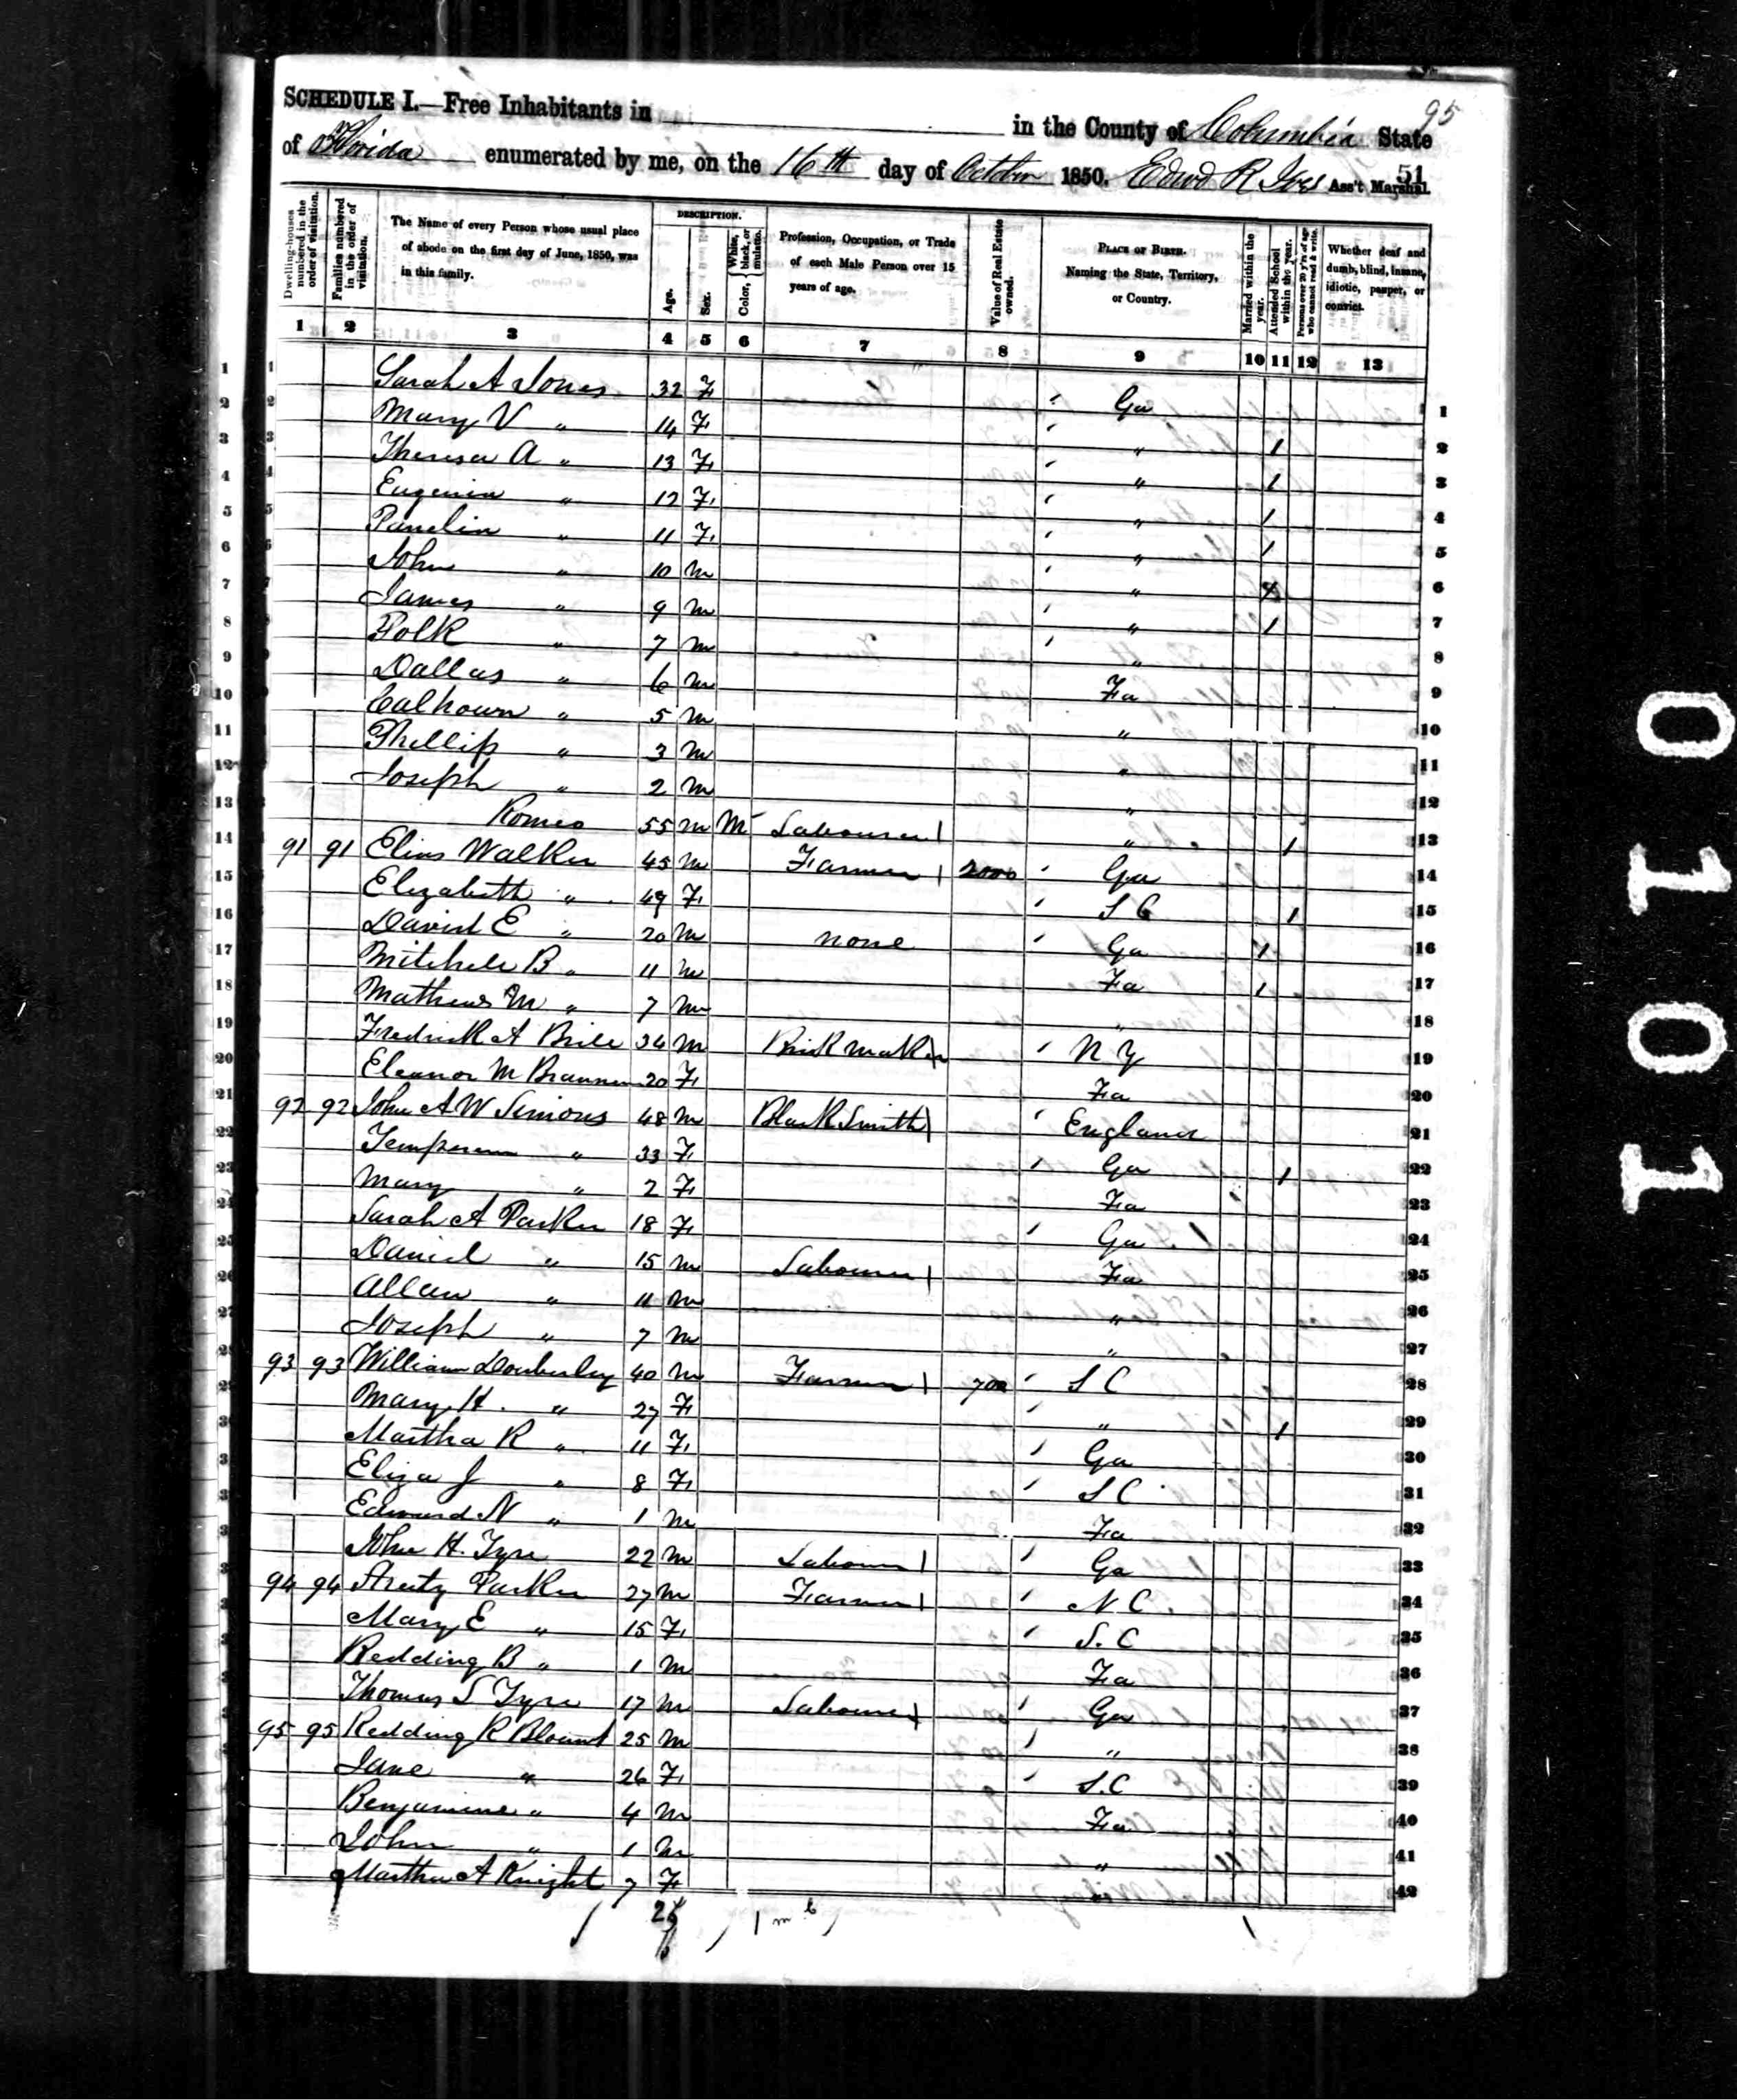 95
SCHEDULE I.—Free Inhabitants in in the County of Columbia State
of Florida enumerated by me, on the 16th day of October 1850. Edwd R Ives Ass't Marshal.
51
Dwelling-houses numbered in the order of visitation. Families numbered in the order of visitation. The Name of every Person whose usual place of abode on the first day of June, 1850, was in this family. DESCRIPTION. Age. Sex. Color, { White, black, or mulatto. Profession, Occupation, or Trade of each Male Person over 15 years of age. Value of Real Estate owned. PLACE OF BIRTH. Naming the State, Territory, or Country. Married within the year. Attended School within the year. Persons over 20 y'rs of age who cannot read & write. Whether deaf and dumb, blind, insane, idiotic, pauper, or convict.
1 2 3 4 5 6 7 8 9 10 11 12 13
1 Sarah A Jones 32 F Ga 1
2 Mary V " 14 F " 1 2
3 Theresa A " 13 F " 1 3
4 Eugenia " 12 F " 1 4
5 " 11 F " 1 5
6 John " 10 m " 6
7 James " 9 m " 1 7
8 Polk " 7 m " 8
9 Dallas " 6 m Fa 9
10 Calhoun " 5 m " 10
11 Phillip " 3 m " 11
12 Joseph " 2 m " 12
13 Romeo 55 m M Labourer " 1 13
14 91 91 Elias Walker 45 m Farmer 2000 Ga 14
15 Elizabeth " 49 F S C 1 15
16 David E " 20 m none Ga 1 16
17 Mitchele B " 11 m Fa 1 17
18 Mathews M " 7 m " 18
19 Fredrick A 34 m Brickmaker N Y 19
20 Eleanor M Brannen 20 F Fa 20
21 92 92 John A W Simons 48 m BlackSmith England 21
22 " 33 F Ga 1 22
23 Mary " 2 F Fa 23
24 Sarah A Parker 18 F Ga 24
25 Daniel " 15 m Labourer Fa 25
26 Allan " 11 m " 26
27 Joseph " 7 m " 27
93 93 William Douberley 40 m Farmer 700 S C 28
Mary H. " 27 F " 1 29
Martha R " 11 F Ga 30
Eliza J " 8 F S C 31
Edward N " 1 m Fa 32
John H. Tyre 22 m Labourer Ga 33
94 94 Parker 27 m Farmer N C 34
Mary E " 15 F S. C 35
Redding B " 1 m Fa 36
Thomas S Tyre 17 m Labourer Ga 37
95 95 Redding R Blount 25 m " 38
Jane " 26 F S. C 39
Benjamine " 4 m Fa 40
John " 1 m " 41
Martha A Knight 7 F " 42
1 m
0101